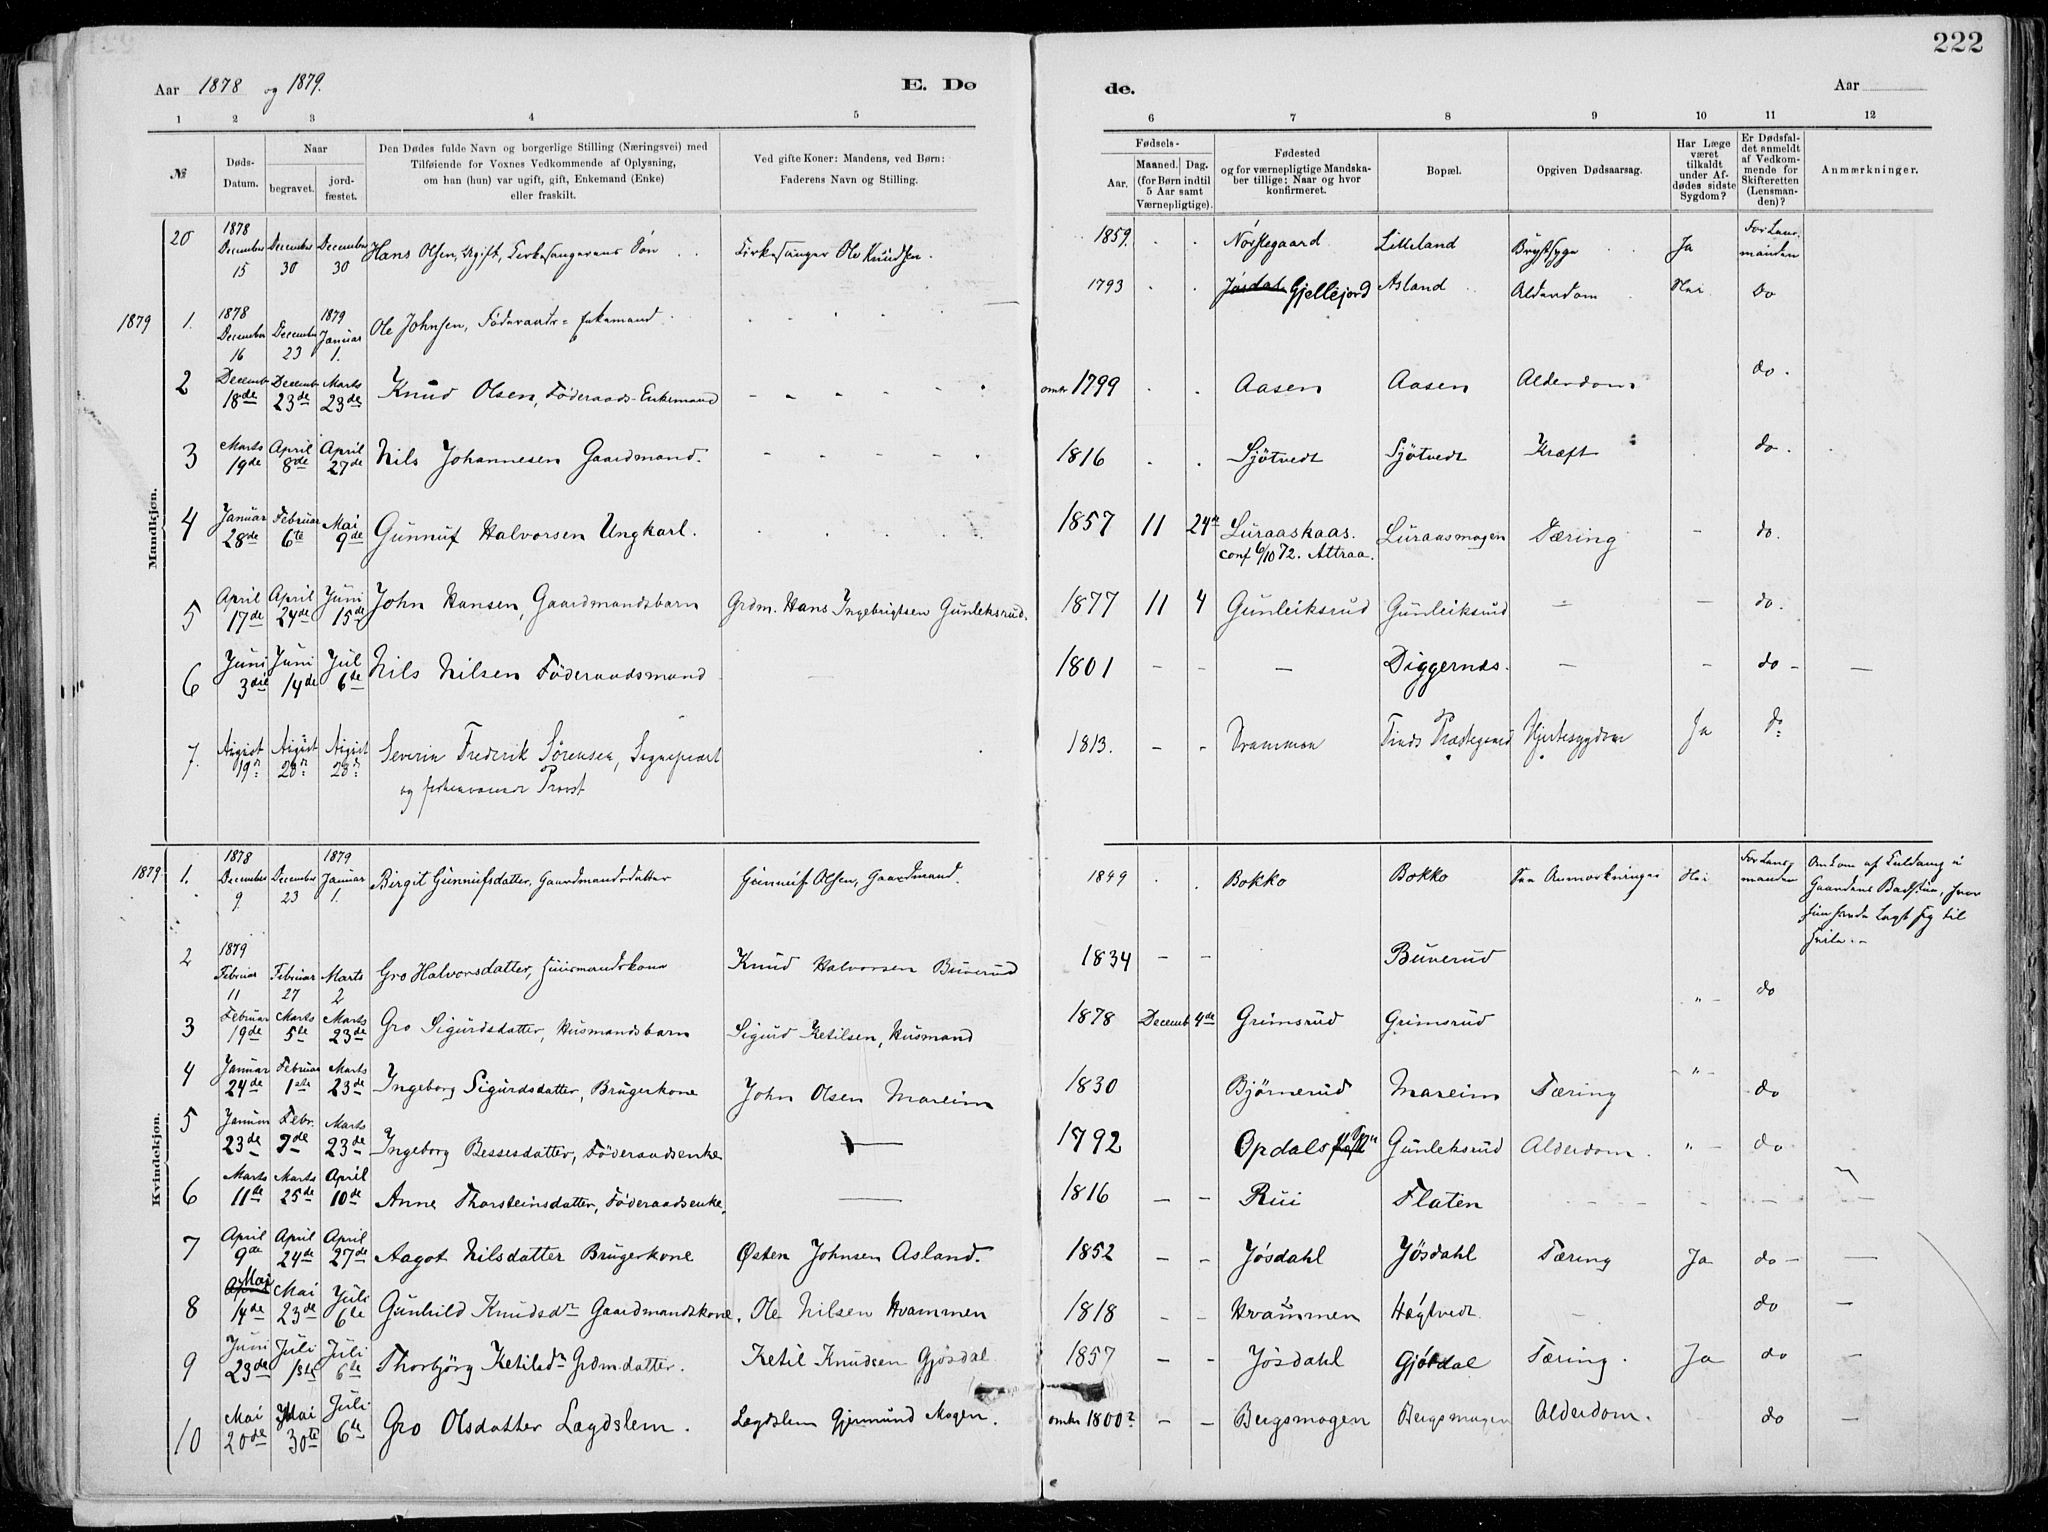 222
Aar 1878 og 1879. E. Dø de. Aar
1 2 3 4 5 6 7 8 9 10 11 12
№
Døds-Datum.
Naar
begravet.
jord-fæstet.
Den Dødes fulde Navn og borgerlige Stilling (Næringsvei) med
Tilføiende for Voxnes Vedkommende af Oplysning,
om han (hun) var ugift, gift, Enkemand (Enke)
eller fraskilt.
Ved gifte Koner: Mandens, ved Børn:
Faderens Navn og Stilling.
Fødsels-
Aar.
Maaned. Dag.
(for Børn indtil
5 Aar samt
Værnepligtige).
Fødested
og for værnepligtige Mandska-
ber tillige: Naar og hvor
konfirmeret.
Bopæl.
Opgiven Dødsaarsag.
Har Læge
været
tilkaldt
under Af-
dødes sidste
Sygdom?
Er Dødsfal-
det anmeldt
af Vedkom-
mende for
Skifteretten
(Lensman-
den)?
Anmærkninger.
Mandkjøn.
20 1878 December 15 December 30 December 30 Hans Olsen, Ugift, Kirkesangerens Søn Kirkesanger Ole Knudsen. 1859. Nørstegaard Litteland Brystsyge Ja For Lens-
manden
1879 1. 1878 December 16 December 23 1879 Januar 1. Ole Johnsen, Føderaads- Enkemand 1793 Jøsdal Gjellejord Asland Alderdom Nei Do
2 Decemb 18de Decemb 23de Marts 23de Knud Olsen, Føderaads-Enkemand omtr 1799 Aasen Aasen Alderdom do.
3 Marts 19de April 8de April 27de Nils Johannesen Gaardmand. 1816 Sjøtvedt Sjøtvedt Kræft do.
4 Januar 28de Februar 6te Mai 9de Gunnuf Halvorsen Ungkarl. 1857 11 24de Luraaskaas. Luraasmogen Tæring – do.
conf 6/10 72. Attraa.
5 April 17de April 24de Juni 15de John Hansen, Gaardmandsbarn Grdm. Hans Ingebrigtsen Gunleksrud. 1877 11 4 Gunleiksrud Gunleiksrud – – do.
6 Juni 3die Juni 14de Jul 6te Nils Nilsen Føderaadsmand 1801 – – – Diggernes. – – do – –
7. August 19de August 28de August 28de Severin Frederik Sørensen, Sognepræst 1813. – – Drammen Tinds Præstegaard Hjertesygdom Ja do
og forhenværende Provst
Kvindekjøn.
1879 1. 1878 December 9 December 23 1879 Januar 1. Birgit Gunnufsdatter, Gaardmandsdatter Gunnuf Olsen, Gaardmand. 1849 Bokko Bokko Se Anmærkninger Nei For Lens-
manden Omkom af Kuldamp i
Gaardens Badstue, hvor
hun havde lagt sig til
hvile. –
2 1879 Februar 11 Februar 27 Marts 2 Gro Halvorsdatter, Huusmandskone Knud Halvorsen Buverud 1834 – – Buverud " – do
3 Februar 19de Marts 5te Marts 23de Gro Sigurdsdatter, Husmandsbarn Sigurd Ketilsen, Husmand 1878 Decemb 4de Grimsrud Grimsrud
4 Januar 24de Februar 1ste Marts 23de Ingeborg Sigurdsdatter, Brugerkone John Olsen Mareim 1830 Bjørnerud Mareim Tæring – " – do
5 Januar 23de Febr. 7de Marts 23de Ingeborg Bessesdatter, Føderaadsenke – 1792 Opdals Gunleksrud Alderdom. " – do
6 Marts 11te Marts 25de April 10de Anne Thorsteinsdatter, Føderaadsenke, – 1816 – – Rui Flaten – – – – – –
7 April 9de April 24de April 27de Aagot Nilsdatter Brugerkone Østen Johnsen Asland. 1852 – – Jøsdahl Jøsdahl Tæring Ja do – –
8 April Mai 14de Mai 23de Juli 6te Gunhild Knudsdr Gaardmandskone. Ole Nilsen Hvammen 1818 Hvammen Høgtvedt – do –
9 Juni 23de Juli 1ste Juli 6te Thorbjørg Ketilsdr Grdm.datter. Ketil Knudsen Gjøsdal 1857 – – Jøsdahl Gjøsdal Tæring. Ja do –
10 Mai 20de Mai 30te Juli 6te Gro Olsdatter Lægdslem. Lægdslem Gjermund Mogen. omtr 1800? – – Bergsmogen Bergsmogen Alderdom. do –